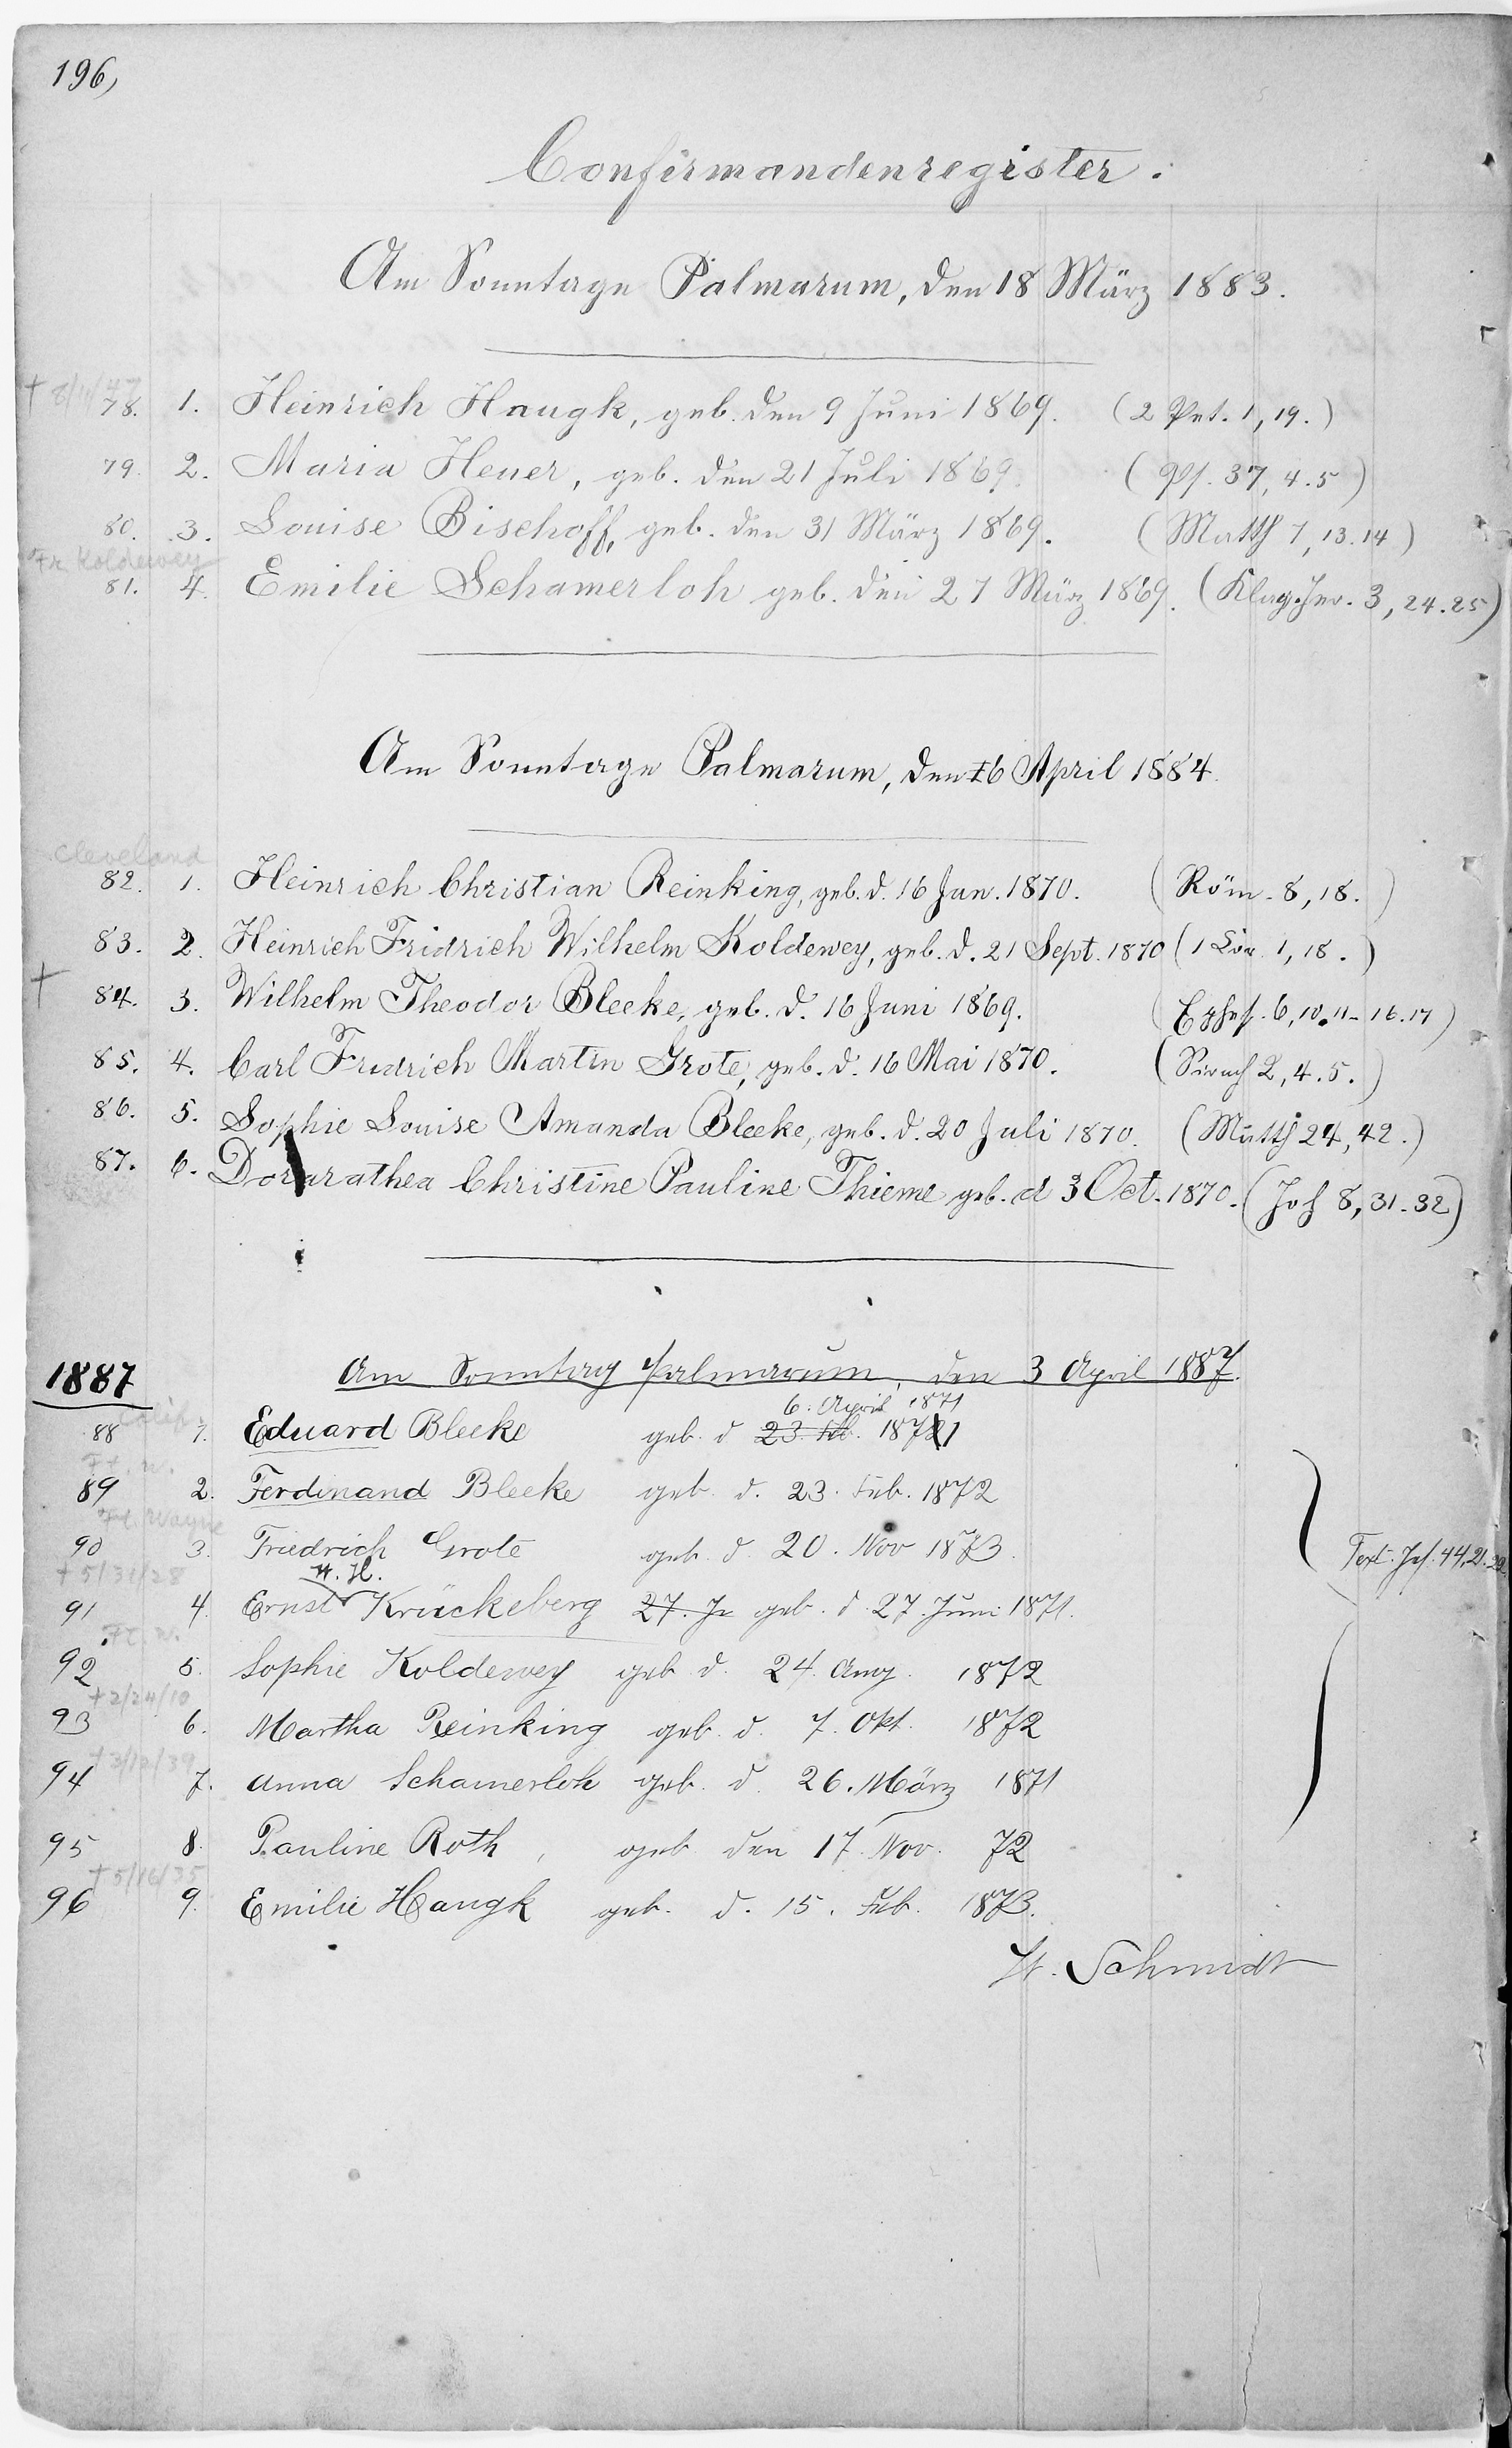 196,
Confirmandenregister.
Am Sonntage Palmarum, den 18 März 1883.
† 8/11/47
78. 1. Heinrich Haugk, geb. den 9 Juni 1869. (2 Pet. 1, 19.)
79. 2. Maria Heuer, geb. den 21 Juli 1869. (Ps. 37, 4.5)
80. 3. Louise Bischoff, geb. den 31 März 1869. (Matth 7, 13.14)
Fr. Koldewey
81. 4. Emilie Schamerloh geb. den 27 März 1869. (Klag. Jer. 3, 24.25)
Am Sonntage Palmarum, den 6 April 1884.
Cleveland
82. 1. Heinrich Christian Reinking, geb. d. 16 Jan. 1870. (Röm. 8, 18.)
83. 2. Heinrich Fridrich Wilhelm Koldewey, geb. d. 21 Sept. 1870 (1 Cor. 1, 18.)
† 84. 3. Wilhelm Theodor Bleeke, geb. d. 16 Juni 1869. (Ephes. 6, 10.11-16.17)
85. 4. Carl Fridrich Martin Grote, geb. d. 16 Mai 1870. (Sirach 2, 4.5.)
86. 5. Sophie Louise Amanda Bleeke, geb. d. 20 Juli 1870. (Matth 24, 42.)
87. 6. Dorarathea Christine Pauline Thieme geb. d 3 Oct. 1870. (Joh 8, 31-32)
1887 Am Sonntag Palmarum, den 3 April 1887.
Calif. 6. April 1871
88 1. Eduard Bleeke geb. d 23. Feb. 1871
Ft. W.
89 2. Ferdinand Bleeke geb. d. 23. Feb. 1872
Ft. Wayne
90 3. Friedrich Grote geb. d. 20. Nov 1873. Text: Jes. 44, 21.22.
† 5/31/28 W. H.
91 4. Ernst Krückeberg 27. Ju geb. d. 27. Juni 1871.
Ft. W.
92 5. Sophie Koldewey geb d. 24. Aug. 1872
† 2/24/10
93 6. Martha Reinking geb. d. 7. Okt. 1872
† 3/12/39
94 7. Anna Schamerloh geb. d. 26. März 1871
95 8. Pauline Roth, geb den 17. Nov. 72
† 5/16/35
96 9. Emilie Haugk geb. d. 15. Feb. 1873.
W. Schmidt